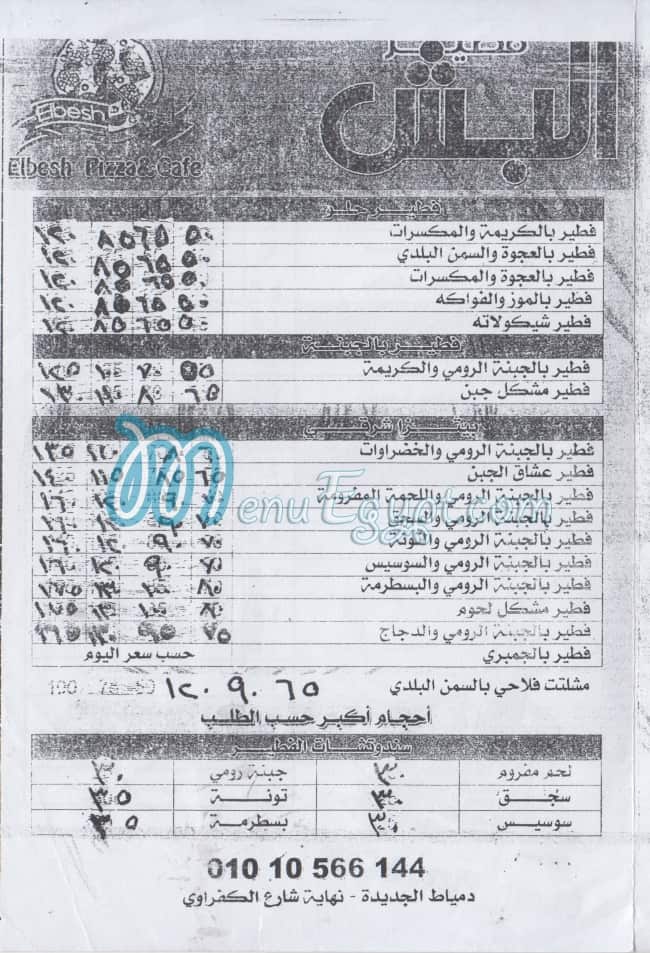 فطير
البش
Elbesh
Elbesh Pizza & Cafe
فطير حلو
فطير بالكريمة والمكسرات ٥٠ ٦٥ ٨٥ ١٢٠
فطير بالعجوة والسمن البلدي ٥٠ ٦٥ ٨٥ ١٢٠
فطير بالعجوة والمكسرات ٥٠ ٦٥ ٨٥ ١٢٠
فطير بالموز والفواكه ٥٠ ٦٥ ٨٥ ١٢٠
فطير شيكولاته ٥٠ ٦٥ ٨٥ ١٢٠
فطير بالجبنة
فطير بالجبنة الرومي والكريمة ٥٥ ٧٠ ١٢٥
فطير مشكل جبن ٦٥ ٨٠ ١٣٠
بيتزا شرقي
فطير بالجبنة الرومي والخضراوات ١٣٥
فطير عشاق الجبن ٦٥ ٨٥
فطير بالجبنة الرومي واللحمة المفرومة
فطير بالجبنة الرومي والسجق
فطير بالجبنة الرومي والتونة ٧٠ ٩٠
فطير بالجبنة الرومي والسوسيس ٧٠ ٩٠ ١٢٠ ١٦٠
فطير بالجبنة الرومي والبسطرمة
فطير مشكل لحوم
فطير بالجبنة الرومي والدجاج ٧٥
فطير بالجمبري حسب سعر اليوم
مشلتت فلاحي بالسمن البلدي ٦٥ ٩٠ ١٢٠
أحجام أكبر حسب الطلب
سندوتشات الفطير
لحم مفروم ٣٠ جبنة رومي ٣٠
سجق ٣٠ تونة ٣٥
سوسيس ٣٠ بسطرمة ٣٥
010 10 566 144
دمياط الجديدة - نهاية شارع الكفراوي
MenuEgypt.com